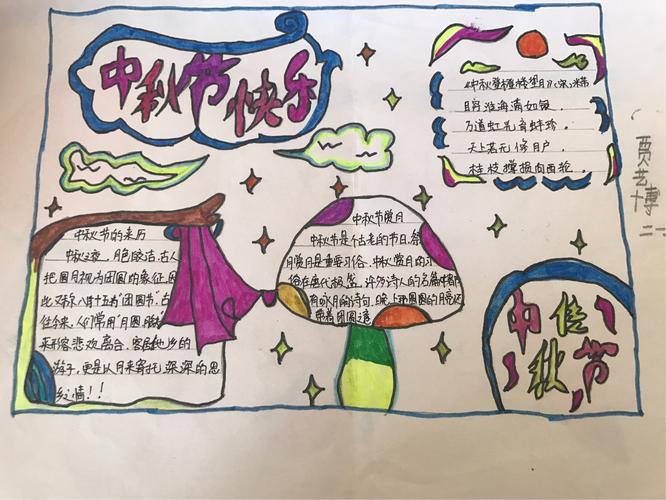 中秋节快乐
《中秋登楼望月》(宋)米
目穷淮海满如银，
万道虹光育蚌珍。
天上若无修月户，
桂枝撑损向西轮。
贾艺博
二一
中秋节的来历
中秋之夜，月色皎洁，古人
把圆月视为团圆的象征，因
此又称八月十五为"团圆节"。古
往今来，人们常用"月圆
来形容悲欢离合，客居他乡的
游子，更是以月来寄托深深的思
乡情！！
中秋节赏月
中秋节是个古老的节日，祭
月赏月是重要习俗。中秋赏月的习
俗在唐代极盛，许多诗人的名篇中都
有咏月的诗句，
带着团圆
中秋佳节